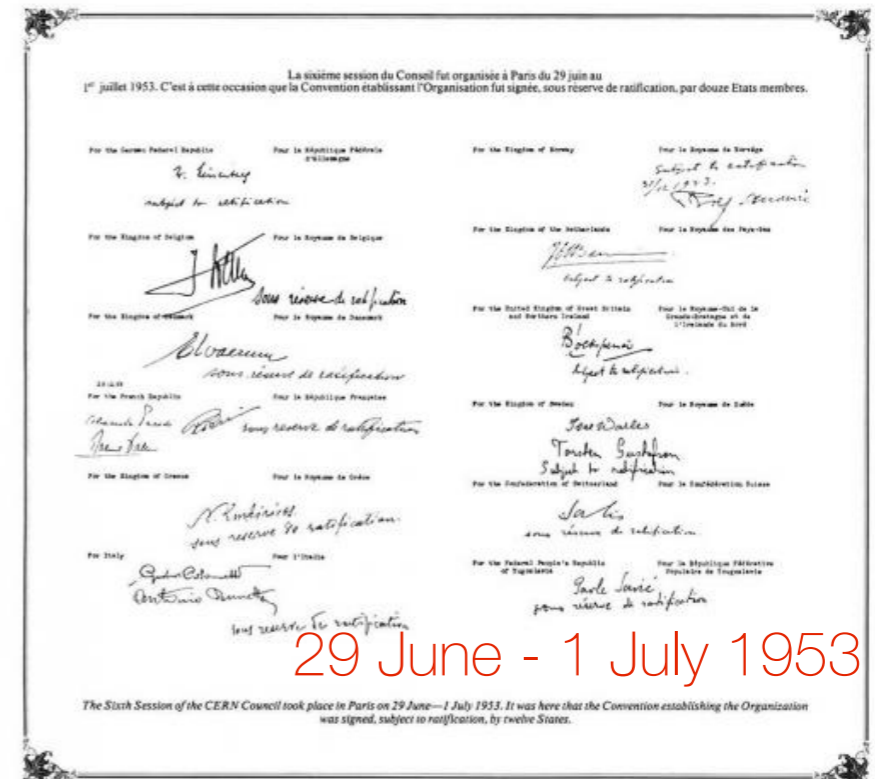 La sixième session du Conseil fut organisée à Paris du 29 juin au
1er juillet 1953. C'est à cette occasion que la Convention établissant l'Organisation fut signée, sous réserve de ratification, par douze Etats membres.
For the German Federal Republic
Pour la République Fédérale
d'Allemagne
subject to ratification
For the Kingdom of Belgium
Pour le Royaume de Belgique
sous réserve de ratification
For the Kingdom of Denmark
Pour le Royaume de Danemark
sous réserve de ratification
For the French Republic
Pour la République Française
sous reserve de ratification
For the Kingdom of Greece
Pour le Royaume de Grèce
sous reserve de ratification.
For Italy
Pour l'Italie
sous reserve de ratification
For the Kingdom of Norway
Pour le Royaume de Norvège
Subject to ratification
For the Kingdom of the Netherlands
Pour le Royaume des Pays-Bas
subject to ratification
For the United Kingdom of Great Britain
and Northern Ireland
Pour le Royaume-Uni de la
Grande-Bretagne et de
l'Irelande du Nord
subject to ratification.
For the Kingdom of Sweden
Pour le Royaume de Suède
Torsten Gustafson
Subject to ratification
For the Confederation of Switzerland
Pour la Confédération Suisse
sous réserve de ratification.
For the Federal People's Republic
of Yugoslavia
Pour la République Fédérative
Populaire de Yougoslavie
Pavle Savić
sous réserve de ratification
29 June - 1 July 1953
The Sixth Session of the CERN Council took place in Paris on 29 June—1 July 1953. It was here that the Convention establishing the Organization
was signed, subject to ratification, by twelve States.